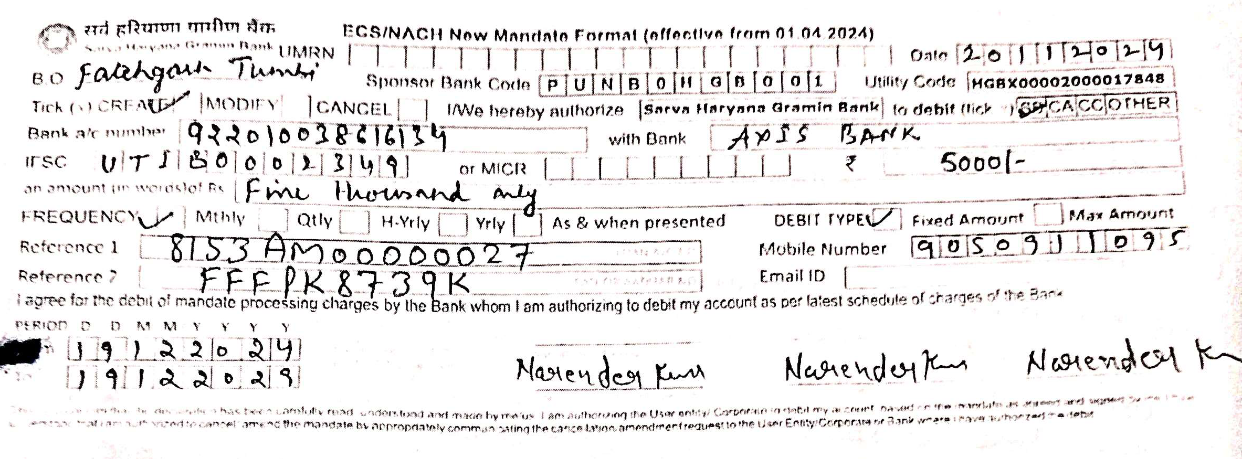 सर्व हरियाणा ग्रामीण बैंक
Sarva Haryana Gramin Bank
ECS/NACH New Mandate Format (effective from 01.04.2024)
UMRN Date 20112024
B.O Fatehgarh Tumbi Sponsor Bank Code PUNB0HGB001 Utility Code HGBX00002000017848
Tick (✓) CREATE ✓ MODIFY CANCEL I/We hereby authorize Sarva Haryana Gramin Bank to debit (tick ✓) SB CA CC OTHER
Bank a/c number 922010038616134 with Bank AXIS BANK
IFSC UTIB0002349 or MICR ₹ 5000/-
an amount (in words) of Rs Five thousand only
FREQUENCY ✓ Mthly Qtly H-Yrly Yrly As & when presented DEBIT TYPE ✓ Fixed Amount Max Amount
Reference 1 8153AM00000027 Mobile Number 9050911095
Reference 2 FFFPK8739K Email ID
I agree for the debit of mandate processing charges by the Bank whom I am authorizing to debit my account as per latest schedule of charges of the Bank
PERIOD D D M M Y Y Y Y
19122024
19122029
Narender Kum Narender Kum Narender K
has been carefully read, understood and made by me/us. I am authorizing the User entity/ Corporate to debit my account, based on the mandate as agreed and signed by me
authorized to cancel/amend the mandate by appropriately communicating the cancellation/amendment request to the User Entity/Corporate or Bank where I have authorized the debit